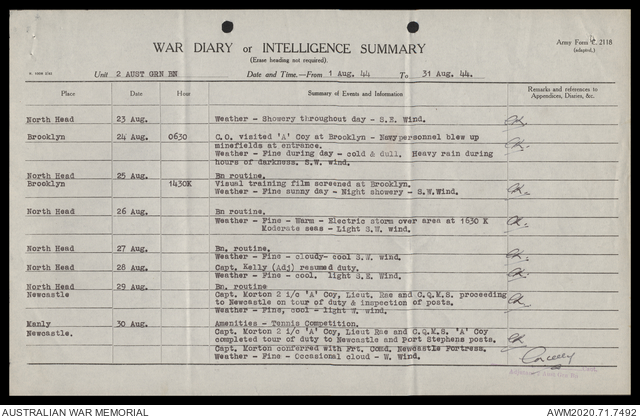 WAR DIARY or INTELLIGENCE SUMMARY
(Erase heading not required).
Army Form C. 2118
(adapted.)
Unit 2 AUST GRN BN Date and Time.—From 1 Aug. 44 To 31 Aug. 44.
Place Date Hour Summary of Events and Information Remarks and references to Appendices, Diaries, &c.
North Head 23 Aug. Weather - Showery throughout day - S.E. Wind.
Brooklyn 24 Aug. 0630 C.O. visited 'A' Coy at Brooklyn - Navy personnel blew up
minefields at entrance.
Weather - Fine during day - cold & dull. Heavy rain during
hours of darkness. S.W. wind.
North Head 25 Aug. Bn routine.
Brooklyn 1430K Visual training film screened at Brooklyn.
Weather - Fine sunny day - Night showery - S.W.Wind.
North Head 26 Aug. Bn routine.
Weather - Fine - Warm - Electric storm over area at 1630 K
Moderate seas - Light S.W. wind.
North Head 27 Aug. Bn. routine.
Weather - Fine - cloudy- cool S.W. wind.
North Head 28 Aug. Capt. Kelly (Adj) resumed duty.
Weather - Fine - cool. light S.E. Wind.
North Head 29 Aug. Bn. routine
Newcastle Capt. Morton 2 i/c 'A' Coy, Lieut. Rae and C.Q.M.S. proceeding
to Newcastle on tour of duty & inspection of posts.
Weather - Fine, cool - light W. wind.
Manly 30 Aug. Amenities - Tennis Competition.
Newcastle. Capt. Morton 2 i/c 'A' Coy, Lieut Rae and C.Q.M.S. 'A' Coy
completed tour of duty to Newcastle and Port Stephens posts.
Capt. Morton conferred with Frt. Comd. Newcastle Fortress.
Weather - Fine - Occasional cloud - W. Wind.
AUSTRALIAN WAR MEMORIAL AWM2020.71.7492